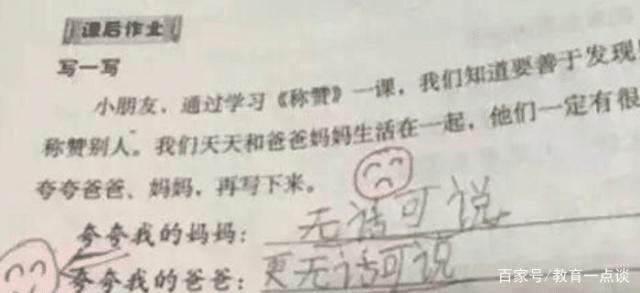 课后作业
写一写
小朋友，通过学习《称赞》一课，我们知道要善于发现
称赞别人。我们天天和爸爸妈妈生活在一起，他们一定有很
夸夸爸爸、妈妈，再写下来。
夸夸我的妈妈：无话可说
夸夸我的爸爸：更无话可说
百家号/教育一点谈